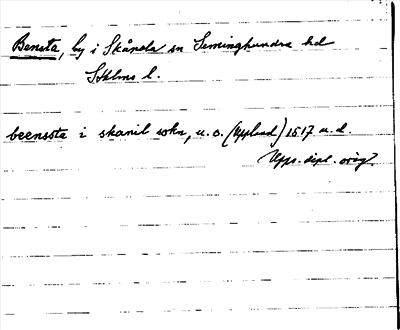 Bensta, by i Skånela sn Seminghundra hd
Sthlms l.
beensta i skanil sokn, u.o. (Uppland) 1517 u.d.
Upps. dipl. orig.